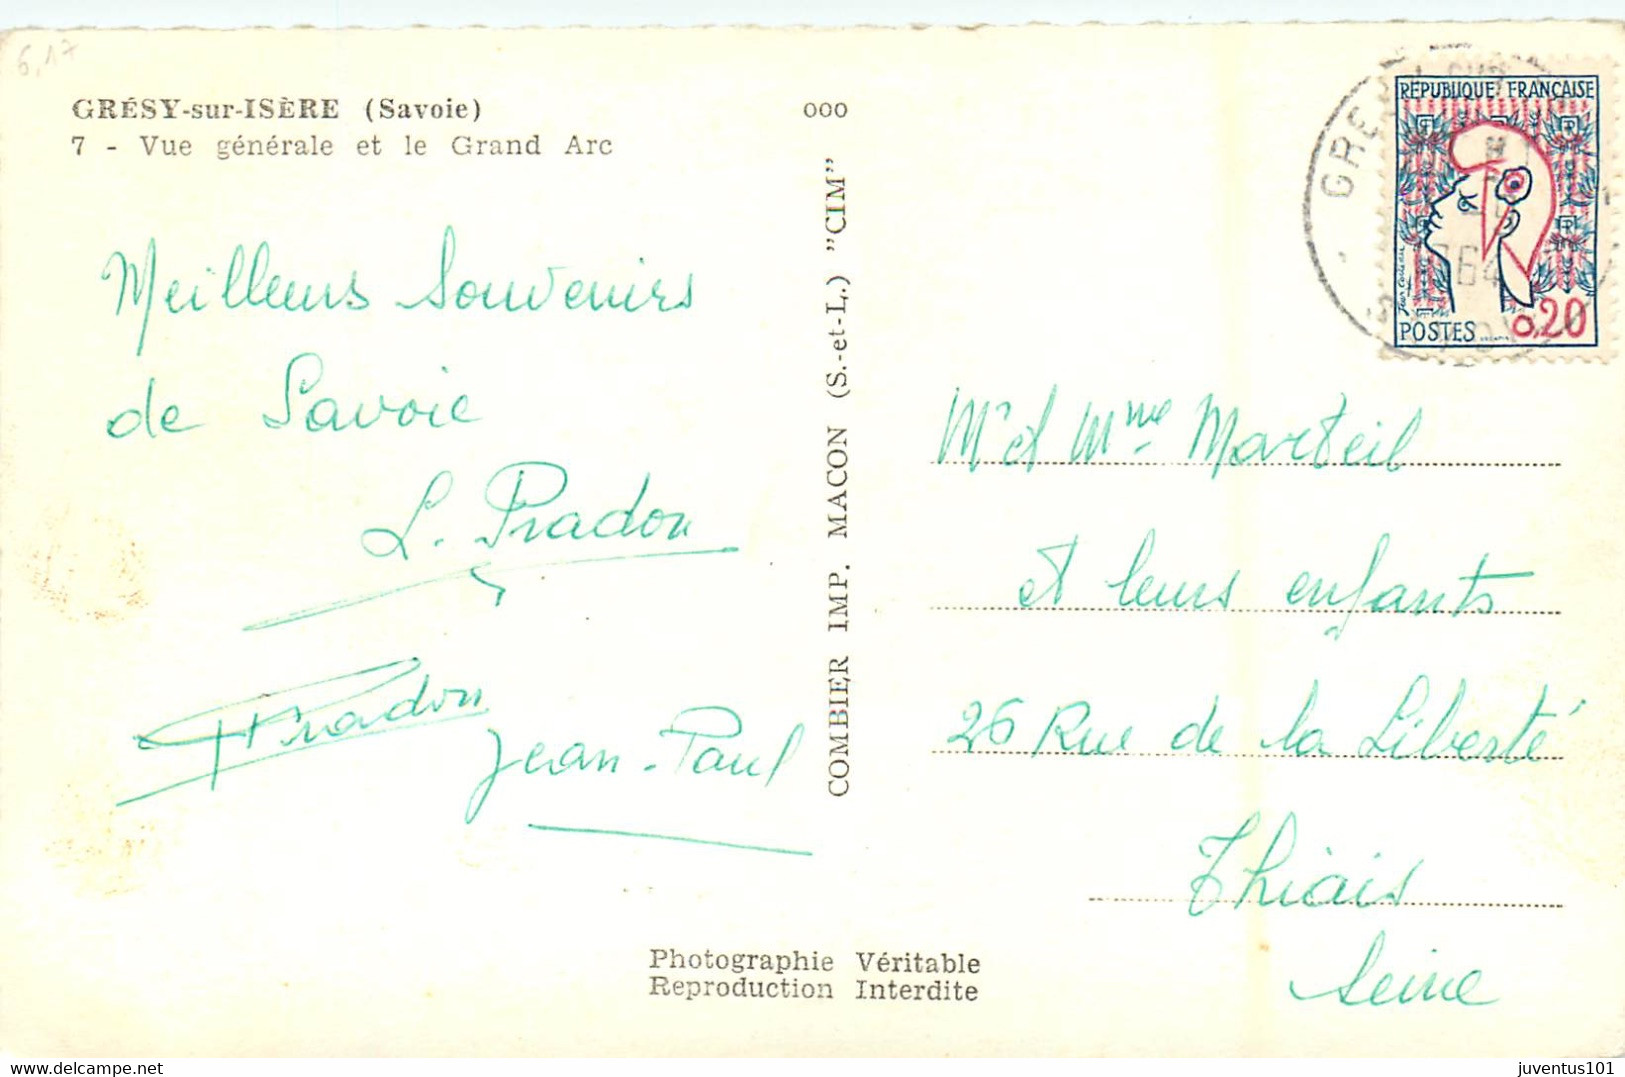 6,17
GRÉSY-sur-ISÈRE (Savoie)
7 - Vue générale et le Grand Arc
000
Meilleurs Souvenirs
de Savoie
L. Pradon
Pradon
Jean-Paul
COMBIER IMP. MACON (S.-et-L.) "CIM"
RÉPUBLIQUE FRANÇAISE
POSTES
0,20
1964
Mr et Mme Marteil
et leurs enfants
26 Rue de la Liberté
Thiais
Seine
Photographie Véritable
Reproduction Interdite
juventus101